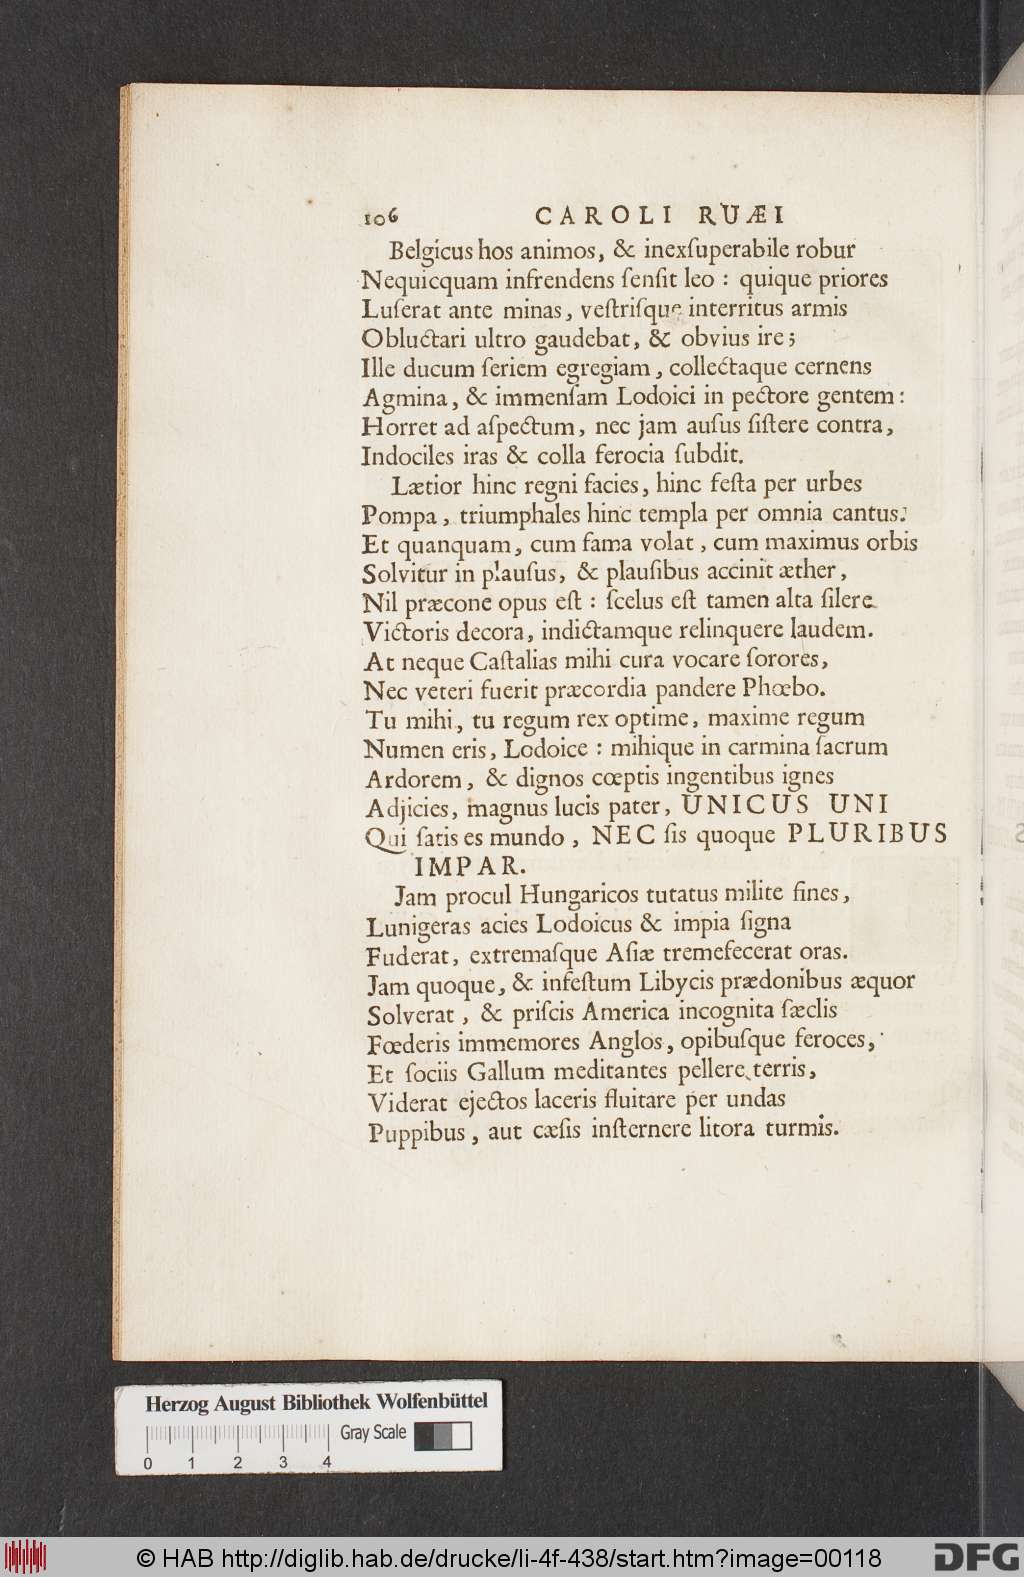 106 CAROLI RUÆI
Belgicus hos animos, & inexſuperabile robur
Nequicquam infrendens ſenſit leo : quique priores
Luſerat ante minas, veſtriſque interritus armis
Obluctari ultro gaudebat, & obvius ire;
Ille ducum ſeriem egregiam, collectaque cernens
Agmina, & immenſam Lodoici in pectore gentem:
Horret ad aſpectum, nec jam auſus ſiſtere contra,
Indociles iras & colla ferocia ſubdit.
Lætior hinc regni facies, hinc feſta per urbes
Pompa, triumphales hinc templa per omnia cantus.
Et quanquam, cum fama volat, cum maximus orbis
Solvitur in plauſus, & plauſibus accinit æther,
Nil præcone opus eſt : ſcelus eſt tamen alta ſilere
Victoris decora, indictamque relinquere laudem.
At neque Caſtalias mihi cura vocare ſorores,
Nec veteri fuerit præcordia pandere Phœbo.
Tu mihi, tu regum rex optime, maxime regum
Numen eris, Lodoice : mihique in carmina ſacrum
Ardorem, & dignos cœptis ingentibus ignes
Adjicies, magnus lucis pater, UNICUS UNI
Qui ſatis es mundo, NEC ſis quoque PLURIBUS
IMPAR.
Jam procul Hungaricos tutatus milite fines,
Lunigeras acies Lodoicus & impia ſigna
Fuderat, extremaſque Aſiæ tremefecerat oras.
Jam quoque, & infeſtum Libycis prædonibus æquor
Solverat, & priſcis America incognita ſæclis
Fœderis immemores Anglos, opibuſque feroces,
Et ſociis Gallum meditantes pellere terris,
Viderat ejectos laceris fluitare per undas
Puppibus, aut cæſis inſternere litora turmis.
Herzog August Bibliothek Wolfenbüttel
Gray Scale
0 1 2 3 4
© HAB http://diglib.hab.de/drucke/li-4f-438/start.htm?image=00118
DFG